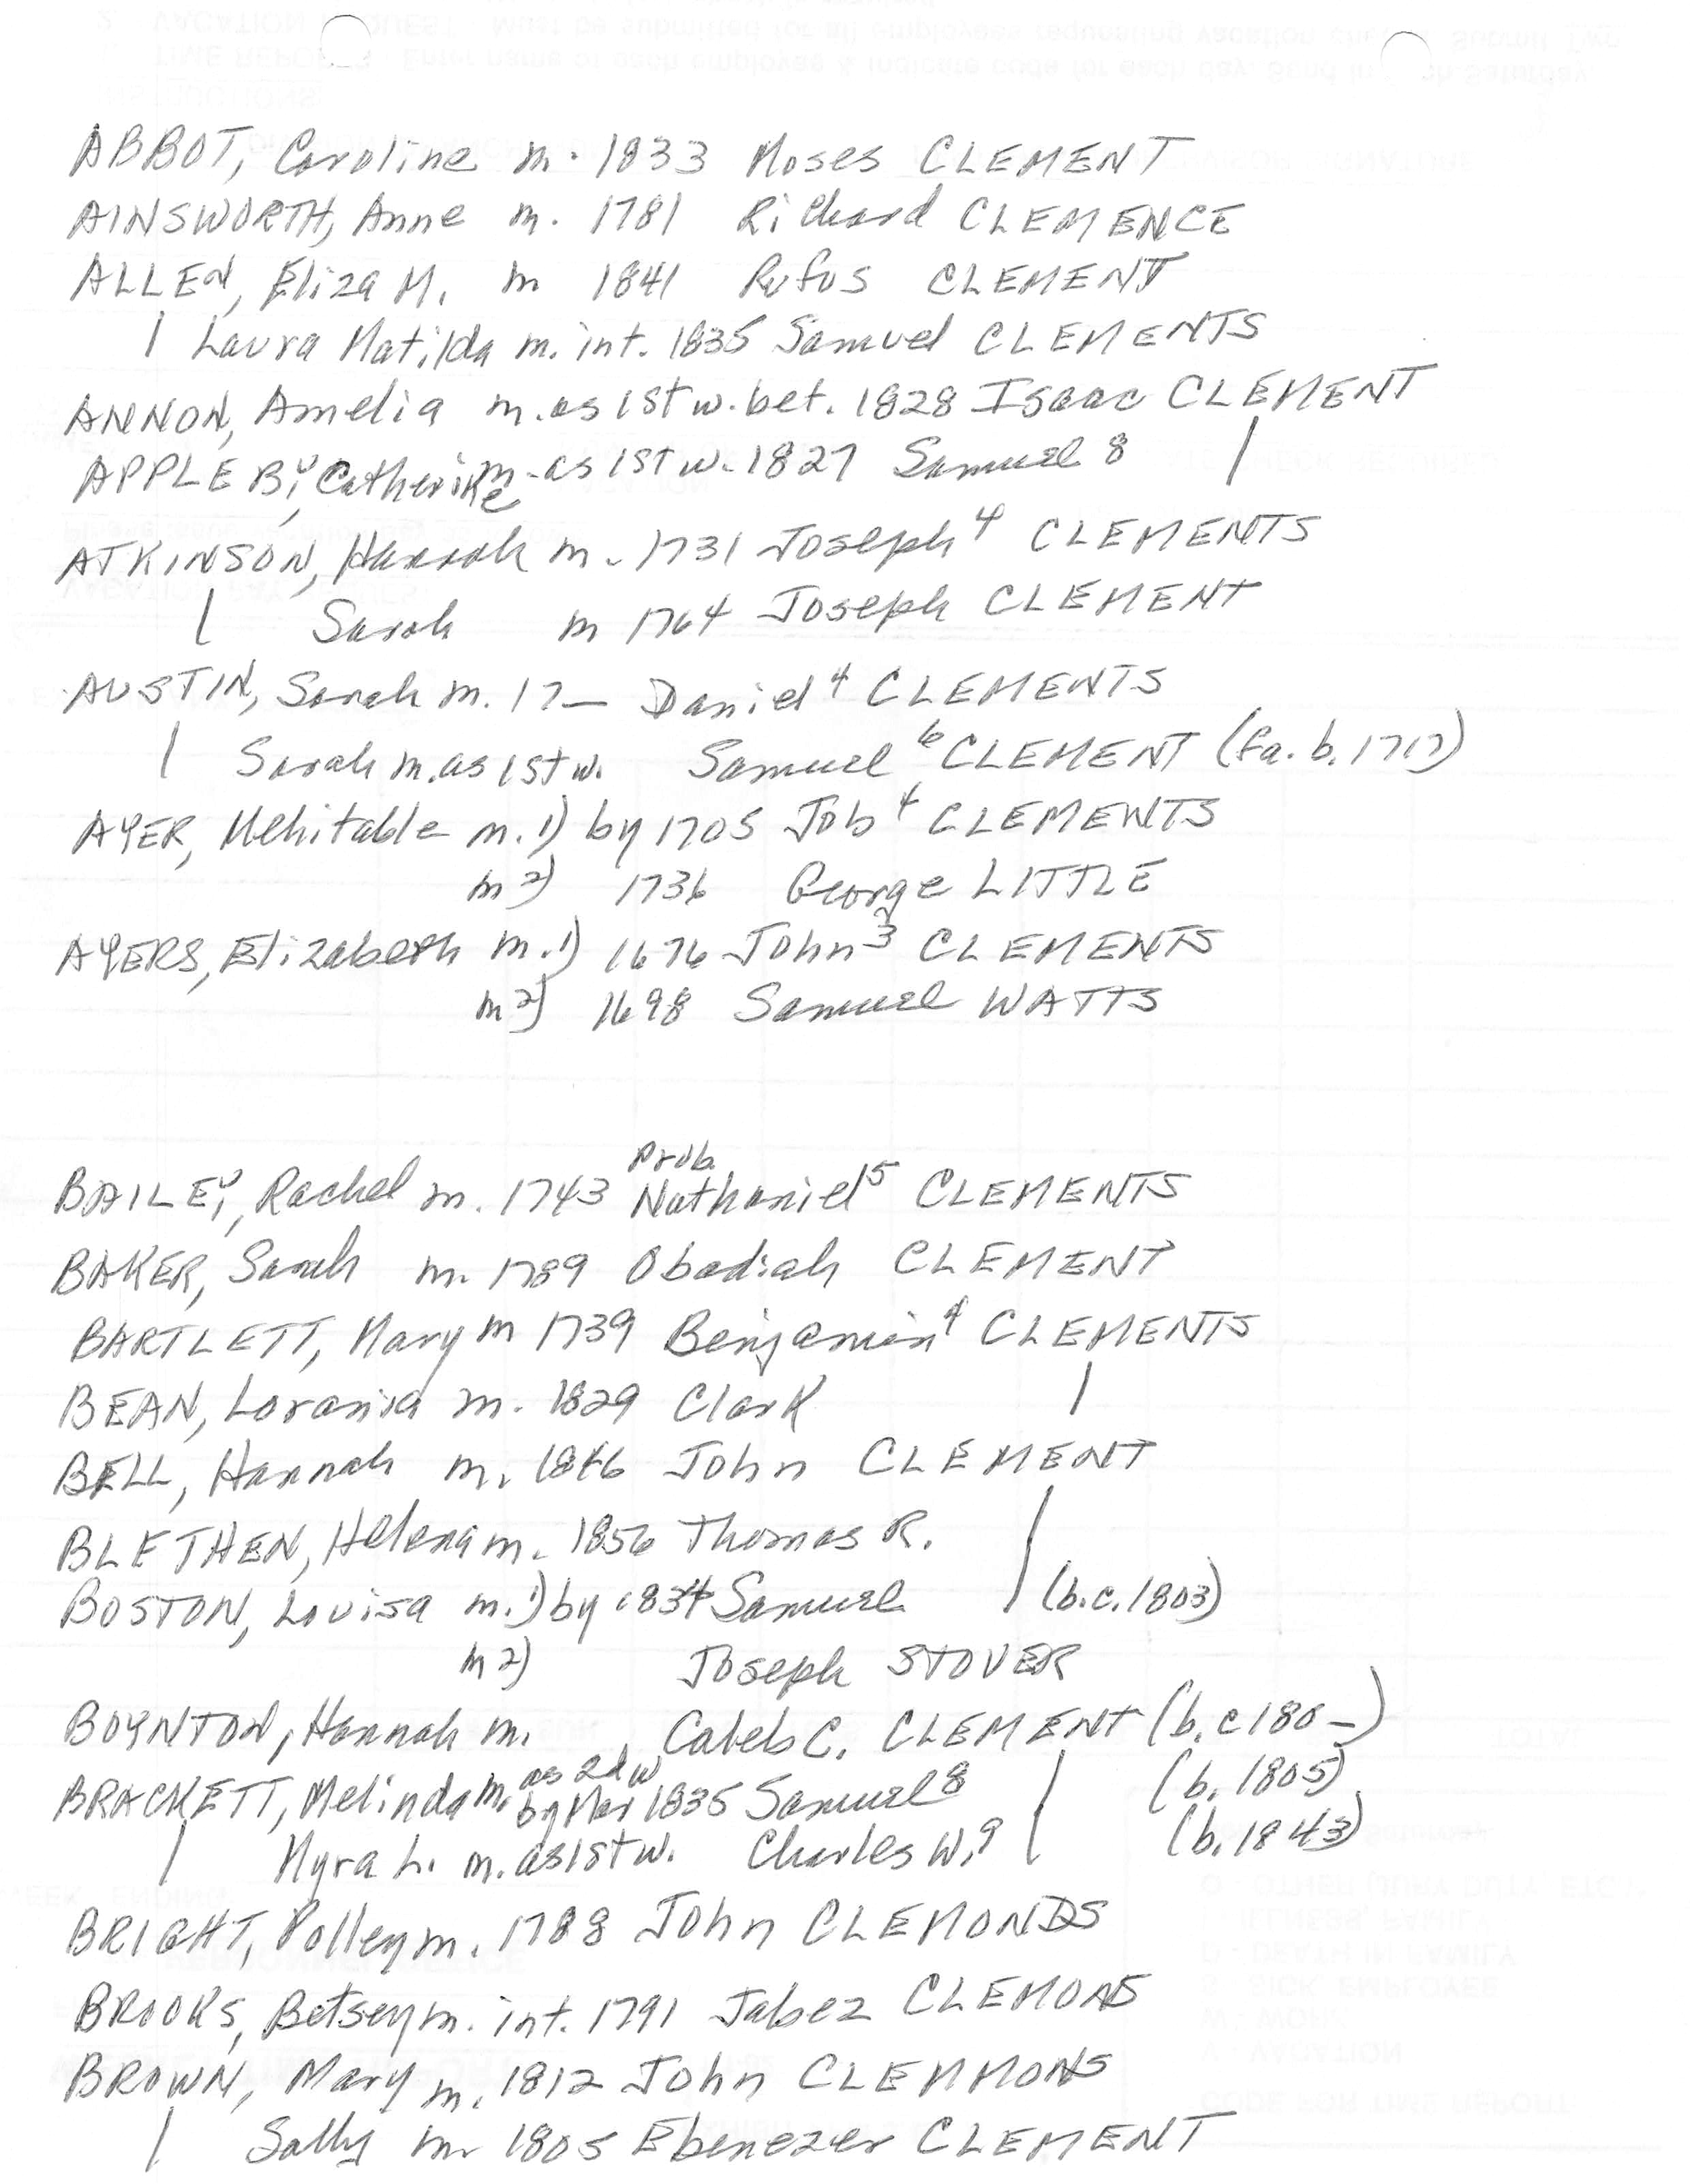 ABBOT, Caroline m. 1833 Moses CLEMENT
AINSWORTH, Anne m. 1781 Richard CLEMENCE
ALLEN, Eliza M. m 1841 Rufus CLEMENT
| Laura Matilda m. int. 1835 Samuel CLEMENTS
ANNON, Amelia m. as 1st w. bet. 1828 Isaac CLEMENT
APPLEBY, Catherine m. as 1st w. 1827 Samuel 8 |
ATKINSON, Hannah m. 1731 Joseph⁴ CLEMENTS
| Sarah m 1764 Joseph CLEMENT
AUSTIN, Sarah m. 17— Daniel⁴ CLEMENTS
| Sarah m. as 1st w. Samuel⁶ CLEMENT (fa. b. 1717)
AYER, Mehitable m. 1) by 1705 Job⁴ CLEMENTS
m 2) 1736 George LITTLE
AYERS, Elizabeth m. 1) 1676 John³ CLEMENTS
m 2) 1698 Samuel WATTS
Prob.
BAILEY, Rachel m. 1743 Nathaniel⁵ CLEMENTS
BAKER, Sarah m. 1789 Obadiah CLEMENT
BARTLETT, Mary m 1739 Benjamin⁴ CLEMENTS
BEAN, Lorania m. 1829 Clark |
BELL, Hannah m. 1846 John CLEMENT
BLETHEN, Helena m. 1856 Thomas R. |
BOSTON, Louisa m. 1) by 1834 Samuel | (b.c. 1803)
m 2) Joseph STOVER
BOYNTON, Hannah m. Caleb C. CLEMENT (b. c 180–)
BRACKETT, Melinda m. as 2d w by Mar 1835 Samuel⁸ | (b. 1805)
| Myra L. m. as 1st w. Charles W.⁹ | (b. 1843)
BRIGHT, Polley m. 1788 John CLEMONDS
BROOKS, Betsey m. int. 1791 Jabez CLEMONS
BROWN, Mary m. 1812 John CLEMMONS
| Sally m 1805 Ebenezer CLEMENT